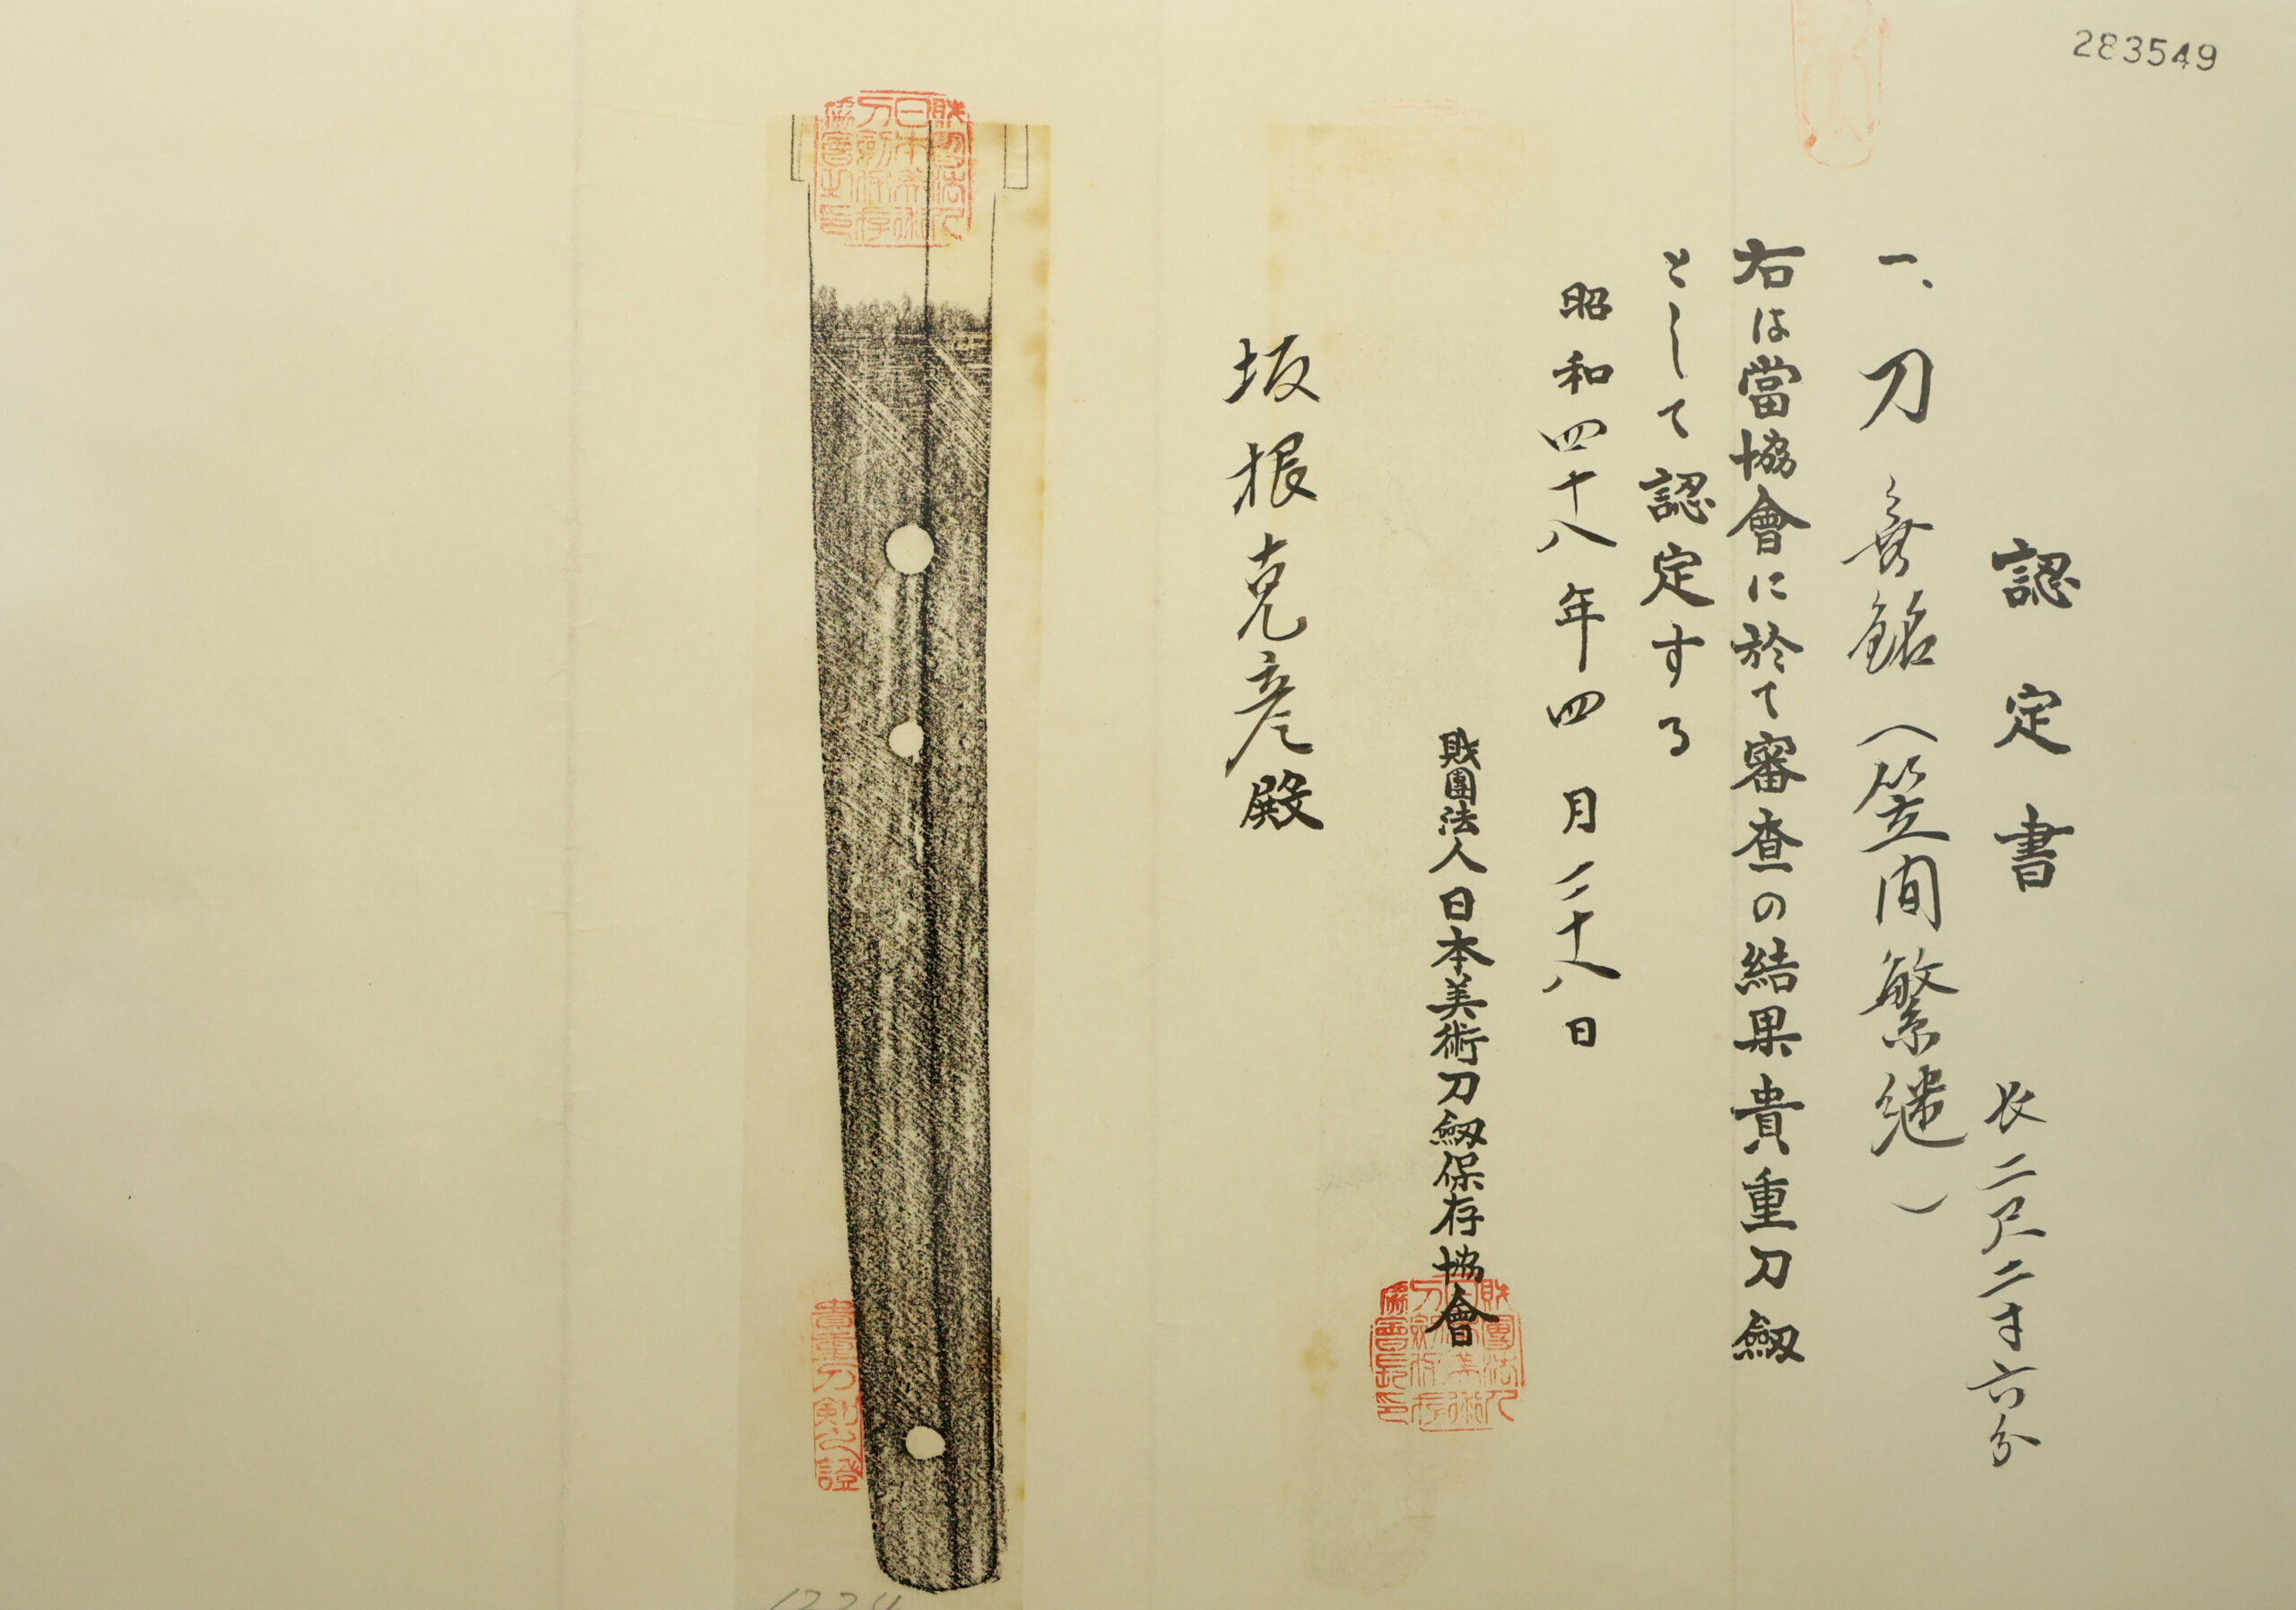 283549
認定書
長二尺二寸六分
一、刀 無銘(笠間繁継)
右は當協會に於て審査の結果貴重刀劔
として認定する
昭和四十八年四月二十八日
財團法人日本美術刀劔保存協會
財團法人日本美術刀劔保存協會長印
坂根克彦殿
財團法人日本美術刀劔保存協會之印
貴重刀剣之證